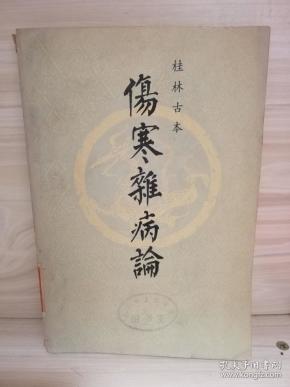 桂林古本
傷寒雜病論
孔夫子旧书网